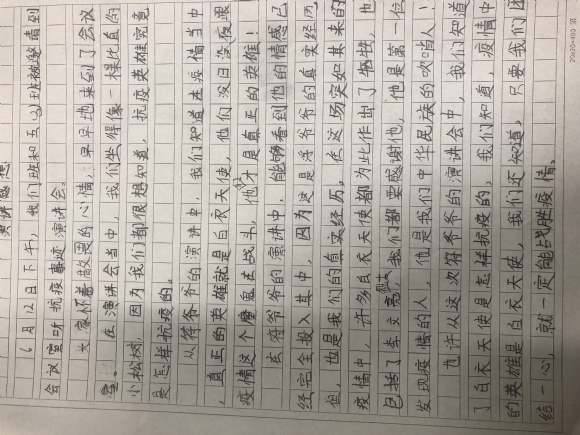 演讲感想
6月12日下午，我们班和五(3)班被邀请到
会议室听抗疫事迹演讲会。
大家怀着敬畏的心情，早早地来到了会议
室。在演讲会当中，我们坐得像一棵比直的
小松树，因为我们都很想知道，抗疫英雄究竟
是怎样抗疫的。
从符爷爷的演讲中，我们知道在疫情当中
，真正的英雄就是白衣天使，他们没日没夜跟
疫情这个魔鬼在战斗，他们才是真正的英雄！
在符爷爷的演讲中，能够看到他的情感已
经完全投入其中，因为这是符爷爷的真实经历
但，也是我们的真实经历。在这场突如其来的
疫情中，许多白衣天使都为此作出了牺牲，也
包括了李文亮，我们都要感谢他，他是第一位
发现疫情的人，他是我们中华民族的吹哨人！
也许从这次符爷爷的演讲会中，我们知道
了白衣天使是怎样抗疫的，我们知道，疫情中
的英雄是白衣天使，我们还知道，只要我们团
结一心，就一定能战胜疫情。
20×20=400 第